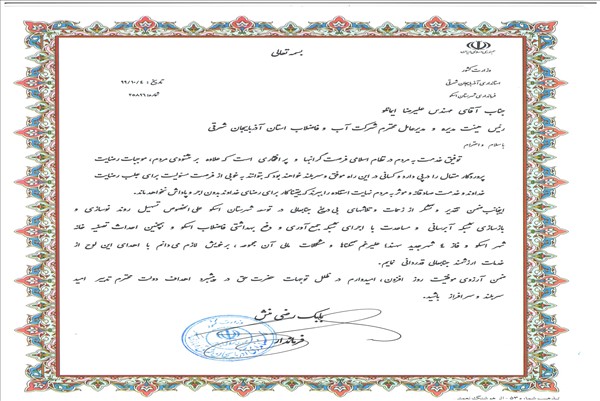 بسمه تعالی
جمهوری اسلامی ایران
وزارت کشور
استانداری آذربایجان شرقی
فرمانداری شهرستان اسکو
تاریخ: ۹۹/۱۰/۴
جناب آقای مهندس علیرضا ایمانلو
رئیس هیئت مدیره و مدیرعامل محترم شرکت آب و فاضلاب استان آذربایجان شرقی
با سلام و احترام
توفیق خدمت به مردم در نظام اسلامی فرصت گرانبها و پر افتخاری است که علاوه بر خشنودی مردم، موجبات رضایت
پروردگار متعال را در پی دارد و کسانی در این راه موفق و سربلند خواهند بود که بتوانند به خوبی از فرصت مسئولیت برای جلب رضایت
خداوند و خدمت صادقانه و موثر به مردم نهایت استفاده را ببرند که بی‌گمان برای رضای خداوند بدون اجر و پاداش نخواهد ماند.
اینجانب ضمن تقدیر و تشکر از زحمات و تلاشهای بی دریغ جنابعالی در توسعه شهرستان اسکو علی الخصوص تسهیل روند نوسازی و
بازسازی شبکه آبرسانی و مساعدت با اجرای شبکه جمع آوری و دفع بهداشتی فاضلاب اسکو و همچنین احداث تصفیه خانه
شهر اسکو و فاز ۴ شهر جدید سهند علیرغم تنگناها و مشکلات مالی آن مجموعه، بر خویش لازم می دانم با اهدای این لوح از
خدمات ارزشمند جنابعالی قدردانی نمایم.
ضمن آرزوی موفقیت روز افزون، امیدوارم در ظل توجهات حضرت حق در پیشبرد اهداف دولت محترم تدبیر و امید
سربلند و سرافراز باشید.
بابک رضی نش
فرماندار